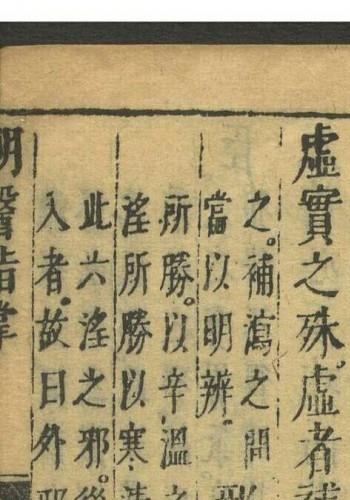 虛實之殊。虛者補
之。補瀉之間
當以明辨。
所勝。以辛溫
淫所勝以寒
此六淫之邪。從
入者。故曰外邪
明醫指掌